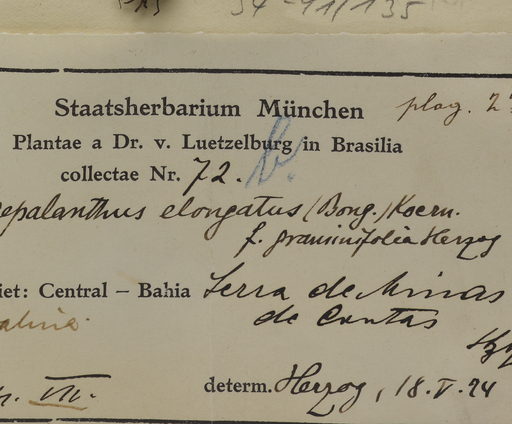 54-41/135
Staatsherbarium München
plag. 2
Plantae a Dr. v. Luetzelburg in Brasilia
collectae Nr. 72. b.
epalanthus elongatus (Bong.) Koern.
f. graminifolia Herzog
iet: Central – Bahia Serra de Minas
de Contas
determ. Herzog, 18.V.24